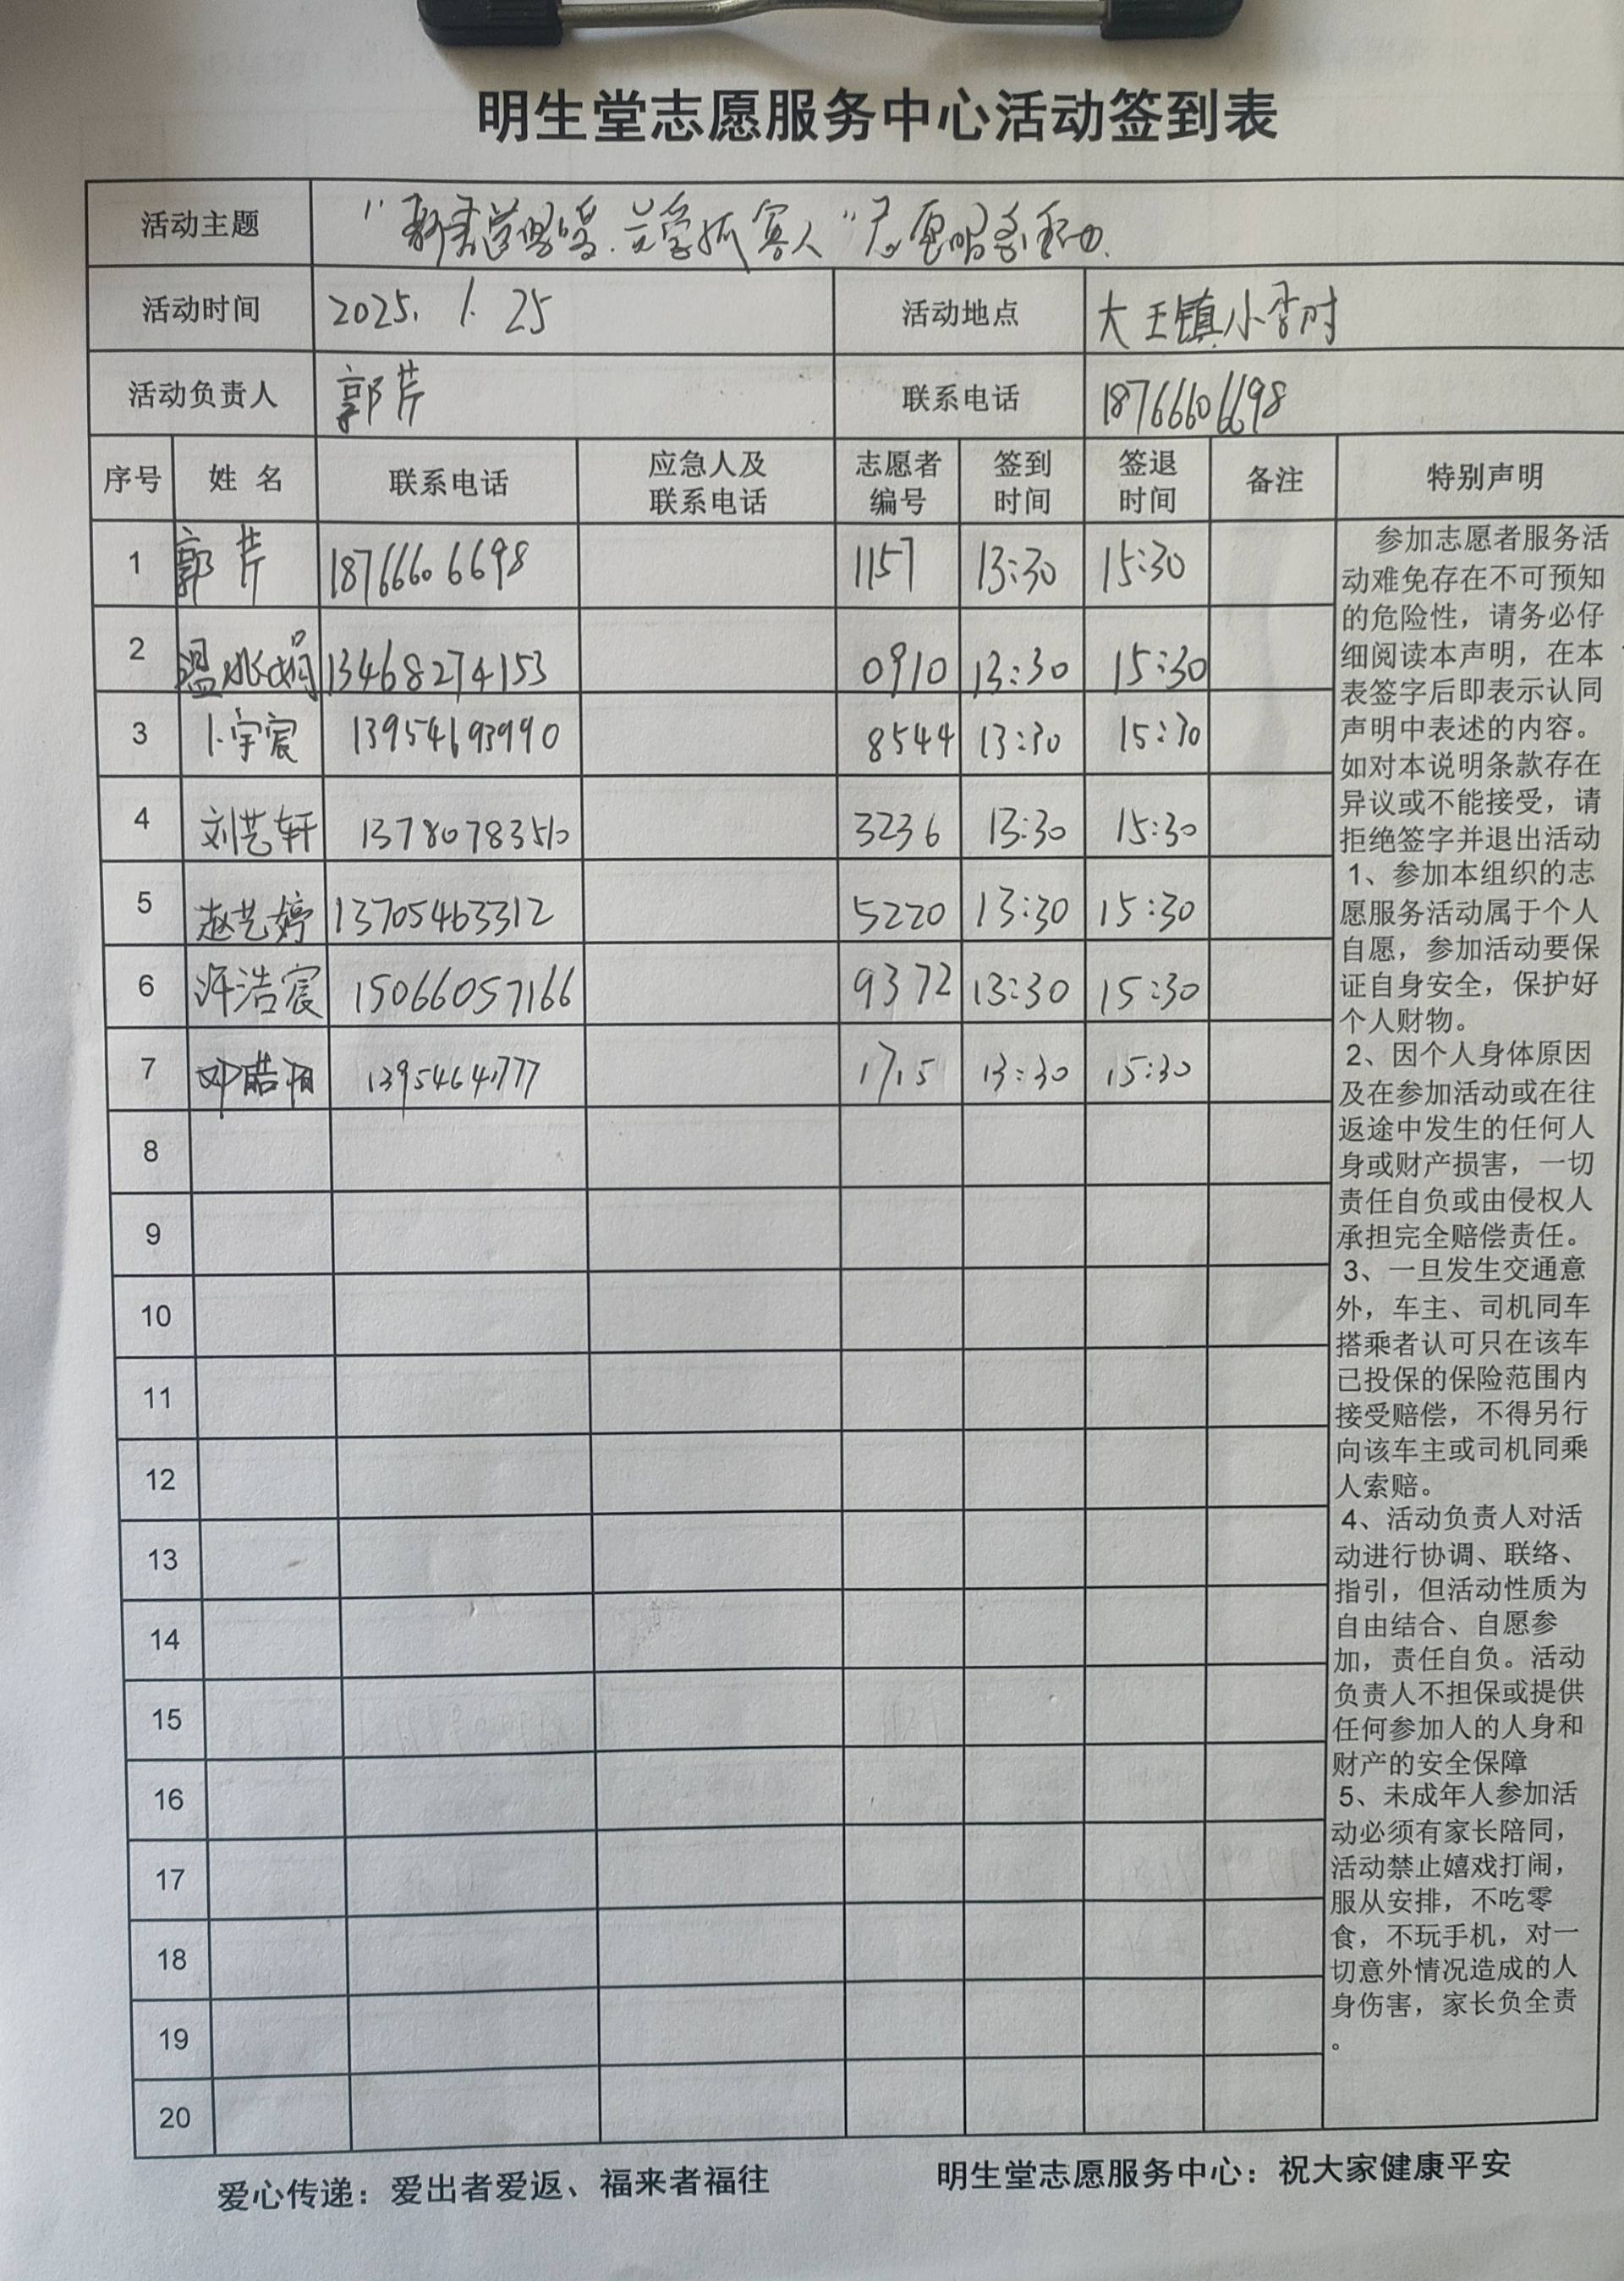 明生堂志愿服务中心活动签到表
活动主题 "新春送温暖.关爱孤寡人"志愿服务活动.
活动时间 2025. 1. 25 活动地点 大王镇小李村
活动负责人 郭芹 联系电话 18766606698
序号 姓 名 联系电话 应急人及联系电话 志愿者编号 签到时间 签退时间 备注 特别声明
1 郭芹 18766606698 1157 13:30 15:30
2 温 13468274153 0910 13:30 15:30
3 卜宇宸 13954693990 8544 13:30 15:30
4 刘艺轩 13780783510 3236 13:30 15:30
5 赵艺婷 13705463312 5220 13:30 15:30
6 许浩宸 15066057166 9372 13:30 15:30
7 1715 13:30 15:30
8
9
10
11
12
13
14
15
16
17
18
19
20
参加志愿者服务活
动难免存在不可预知
的危险性，请务必仔
细阅读本声明，在本
表签字后即表示认同
声明中表述的内容。
如对本说明条款存在
异议或不能接受，请
拒绝签字并退出活动
1、参加本组织的志
愿服务活动属于个人
自愿，参加活动要保
证自身安全，保护好
个人财物。
2、因个人身体原因
及在参加活动或在往
返途中发生的任何人
身或财产损害，一切
责任自负或由侵权人
承担完全赔偿责任。
3、一旦发生交通意
外，车主、司机同车
搭乘者认可只在该车
已投保的保险范围内
接受赔偿，不得另行
向该车主或司机同乘
人索赔。
4、活动负责人对活
动进行协调、联络、
指引，但活动性质为
自由结合、自愿参
加，责任自负。活动
负责人不担保或提供
任何参加人的人身和
财产的安全保障
5、未成年人参加活
动必须有家长陪同，
活动禁止嬉戏打闹，
服从安排，不吃零
食，不玩手机，对一
切意外情况造成的人
身伤害，家长负全责
。
爱心传递：爱出者爱返、福来者福往 明生堂志愿服务中心：祝大家健康平安